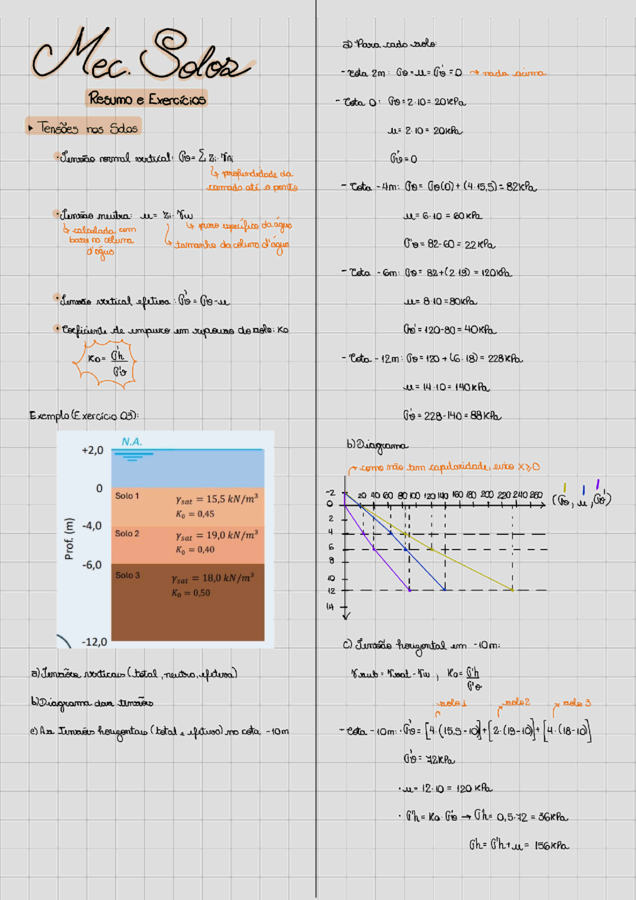 Mec. Solos
Resumo e Exercícios
▸ Tensões nos Solos
• Tensão normal vertical: σv = Σ zi · γni
↳ profundidade da
camada até o ponto
• Tensão neutra: u = zi · γw
↳ calculada com
base na coluna
d'água
↳ peso específico da água
↳ tamanho da coluna d'água
• Tensão vertical efetiva: σ'v = σv - u
• Coeficiente de empuxo em repouso do solo: K0
K0 = σ'h / σ'v
Exemplo (Exercício 03):
N.A.
+2,0
0
Solo 1
γsat = 15,5 kN/m³
K0 = 0,45
-4,0
Solo 2
γsat = 19,0 kN/m³
K0 = 0,40
Prof. (m)
-6,0
Solo 3
γsat = 18,0 kN/m³
K0 = 0,50
-12,0
a) Tensões verticais (total, neutra, efetiva)
b) Diagrama das tensões
c) As Tensões horizontais (total e efetiva) na cota -10m
a) Para cada solo:
- Cota 2m: σv = u = σ'v = 0 → nada acima
- Cota 0: σv = 2·10 = 20kPa
u = 2·10 = 20kPa
σ'v = 0
- Cota -4m: σv = σv(0) + (4·15,5) = 82kPa
u = 6·10 = 60kPa
σ'v = 82-60 = 22kPa
- Cota -6m: σv = 82+(2·19) = 120kPa
u = 8·10 = 80kPa
σv' = 120-80 = 40kPa
- Cota -12m: σv = 120 + (6·18) = 228kPa
u = 14·10 = 140kPa
σ'v = 228-140 = 88kPa
b) Diagrama
↱ como não tem capilaridade, eixo x≥0
-2 20 40 60 80 100 120 140 160 180 200 220 240 260
(σv, u, σv')
0
2
4
6
8
10
12
14
c) Tensão horizontal em -10m:
γsub = γsat - γw, K0 = σ'h / σ'v
solo 1 solo 2 solo 3
- Cota -10m: · σ'v = [4·(15,5-10)]+[2·(19-10)]+[4·(18-10)]
σ'v = 72kPa
· u = 12·10 = 120 kPa
· σ'h = K0·σ'v → σ'h = 0,5·72 = 36kPa
σh = σ'h + u = 156kPa